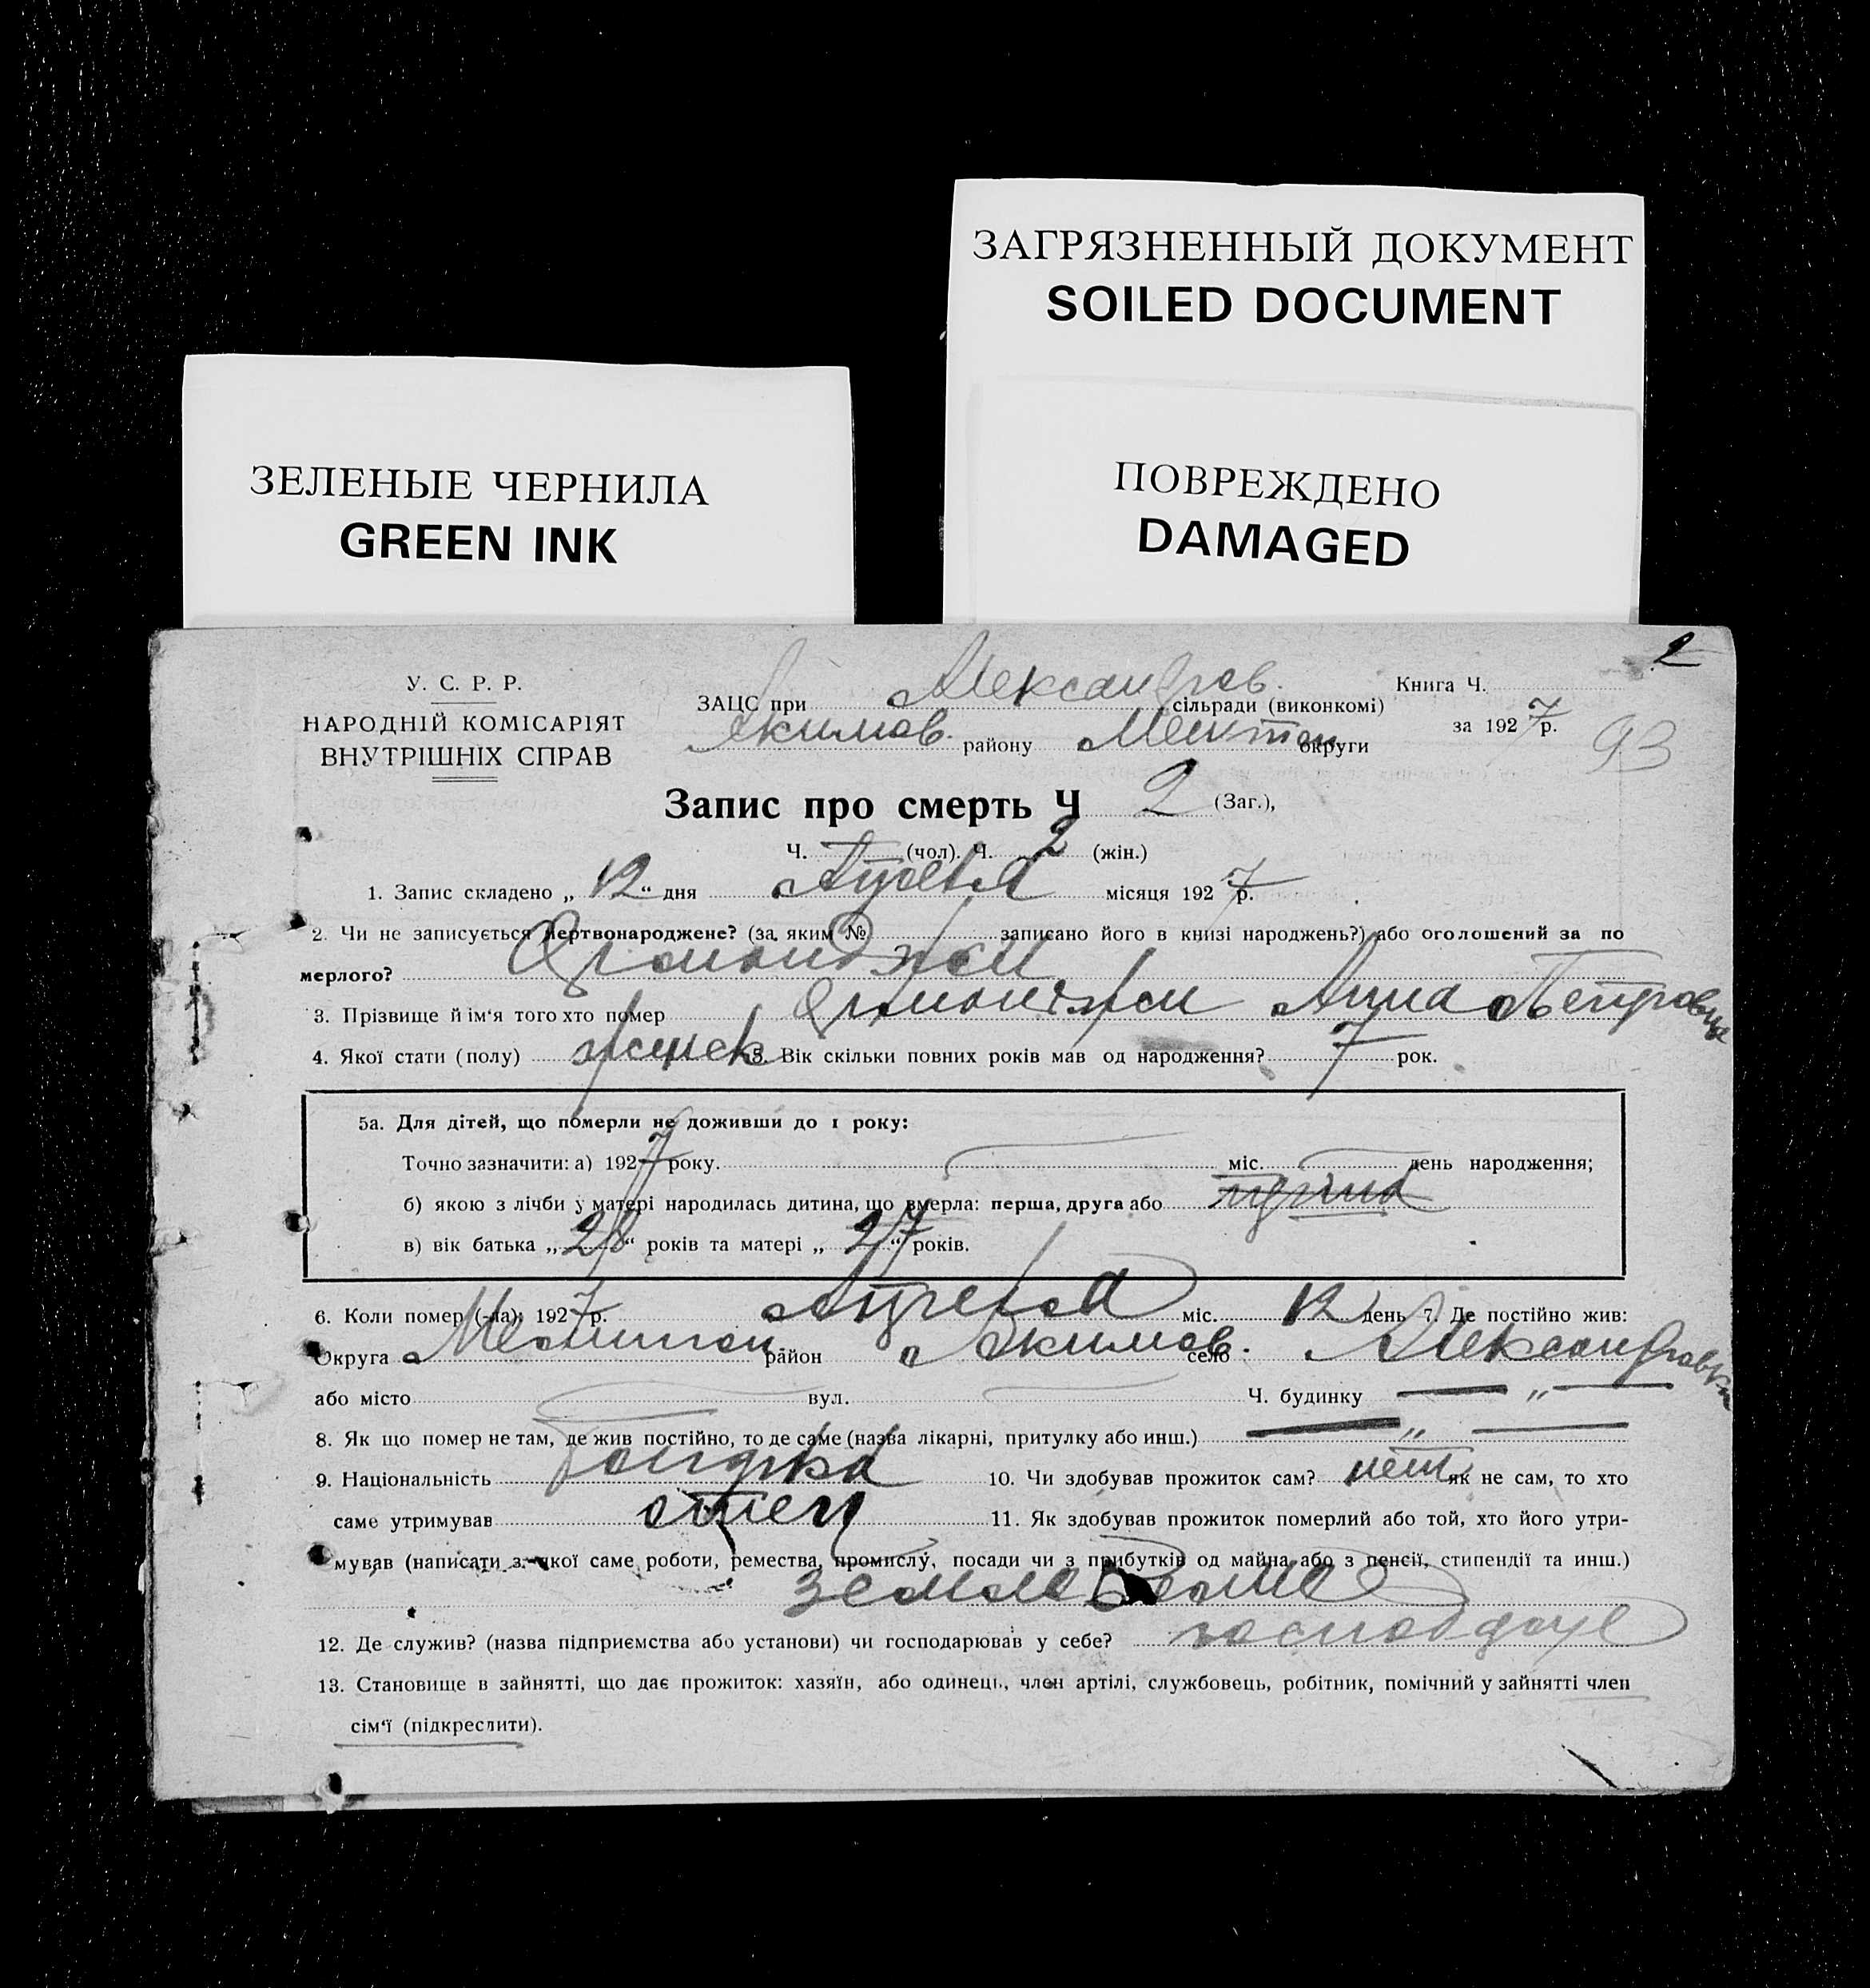 ЗАГРЯЗНЕННЫЙ ДОКУМЕНТ
SOILED DOCUMENT
ЗЕЛЕНЫЕ ЧЕРНИЛА
GREEN INK
ПОВРЕЖДЕНО
DAMAGED
2
У. С. Р. Р.
НАРОДНІЙ КОМІСАРІЯТ
ВНУТРІШНІХ СПРАВ
ЗАЦС при Александров. сільради (виконкомі)
Якимов. району округи
Книга Ч.
за 1927 р.
93
Запис про смерть Ч 2 (Заг.),
Ч. (чол). Ч. 2 (жін.)
1. Запис складено „ 12 “ дня Апреля місяця 1927 р.
2. Чи не записується мертвонароджене? (за яким № записано його в книзі народжень?) або оголошений за по
мерлого?
3. Прізвище й ім‘я того хто помер Анна Петровна
4. Якої стати (полу) женск 5. Вік скільки повних років мав од народження? 7 рок.
5а. Для дітей, що померли не доживши до 1 року:
Точно зазначити: а) 1927 року. міс. день народження;
б) якою з лічби у матері народилась дитина, що вмерла: перша, друга або
в) вік батька „ 28 “ років та матері „ 27 “ років.
6. Коли помер (-ла): 1927 р. Апреля міс. 12 день 7. Де постійно жив:
Округа район Якимов. село Александровка
або місто вул. Ч. будинку — „ —
8. Як що помер не там, де жив постійно, то де саме (назва лікарні, притулку або инш.) — „ —
9. Національність 10. Чи здобував прожиток сам? нет як не сам, то хто
саме утримував отец 11. Як здобував прожиток померлий або той, хто його утри-
мував (написати з якої саме роботи, ремества, промислу, посади чи з прибутків од майна або з пенсії, стипендії та инш.)
12. Де служив? (назва підприємства або установи) чи господарював у себе?
13. Становище в зайнятті, що дає прожиток: хазяїн, або одинець, член артілі, службовець, робітник, помічний у зайнятті член
сім‘ї (підкреслити).